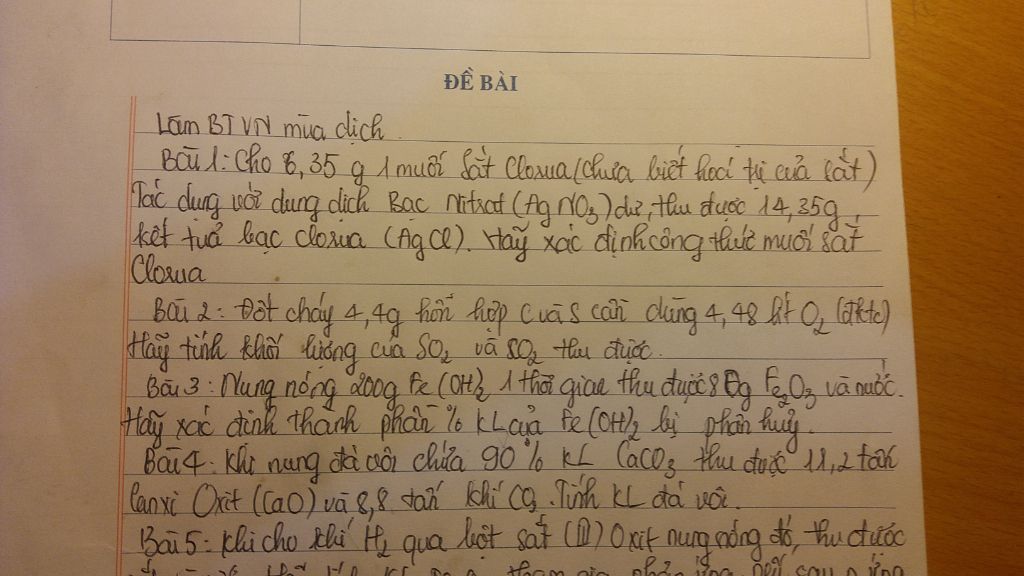 ĐỀ BÀI
Làm BTVN mùa dịch.
Bài 1: Cho 6,35 g 1 muối sắt Clorua (chưa biết hoá trị của sắt)
Tác dụng với dung dịch Bạc Nitrat (AgNO3) dư, thu được 14,35g
kết tuả bạc clorua (AgCl). Hãy xác định công thức muối sắt
Clorua
Bài 2: Đốt cháy 4,4g hỗn hợp C và S cần dùng 4,48 lít O2 (đktc)
Hãy tính khối lượng của SO2 và SO2 thu được.
Bài 3: Nung nóng 200g Fe(OH)2 1 thời gian thu được 80g Fe2O3 và nước.
Hãy xác định thành phần % KL của Fe(OH)2 bị phân huỷ.
Bài 4: Khi nung đá vôi chứa 90% KL CaCO3 thu được 11,2 tấn
Canxi Oxit (CaO) và 8,8 tấn khí CO2. Tính KL đá vôi.
Bài 5: Khi cho khí H2 qua bột sắt (III) Oxit nung nóng đỏ, thu được
tham gia phản ứng